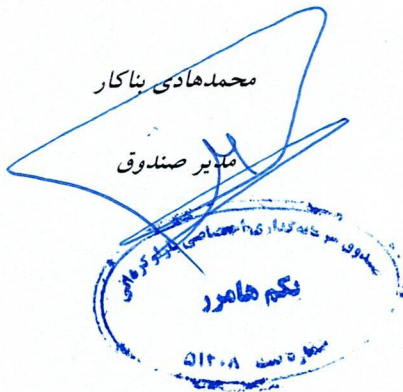 محمدهادی بناکار
مدیر صندوق
صندوق سرمایه‌گذاری اختصاصی بازارگردانی
یکم هامرز
شماره ثبت ۵۱۴۰۸